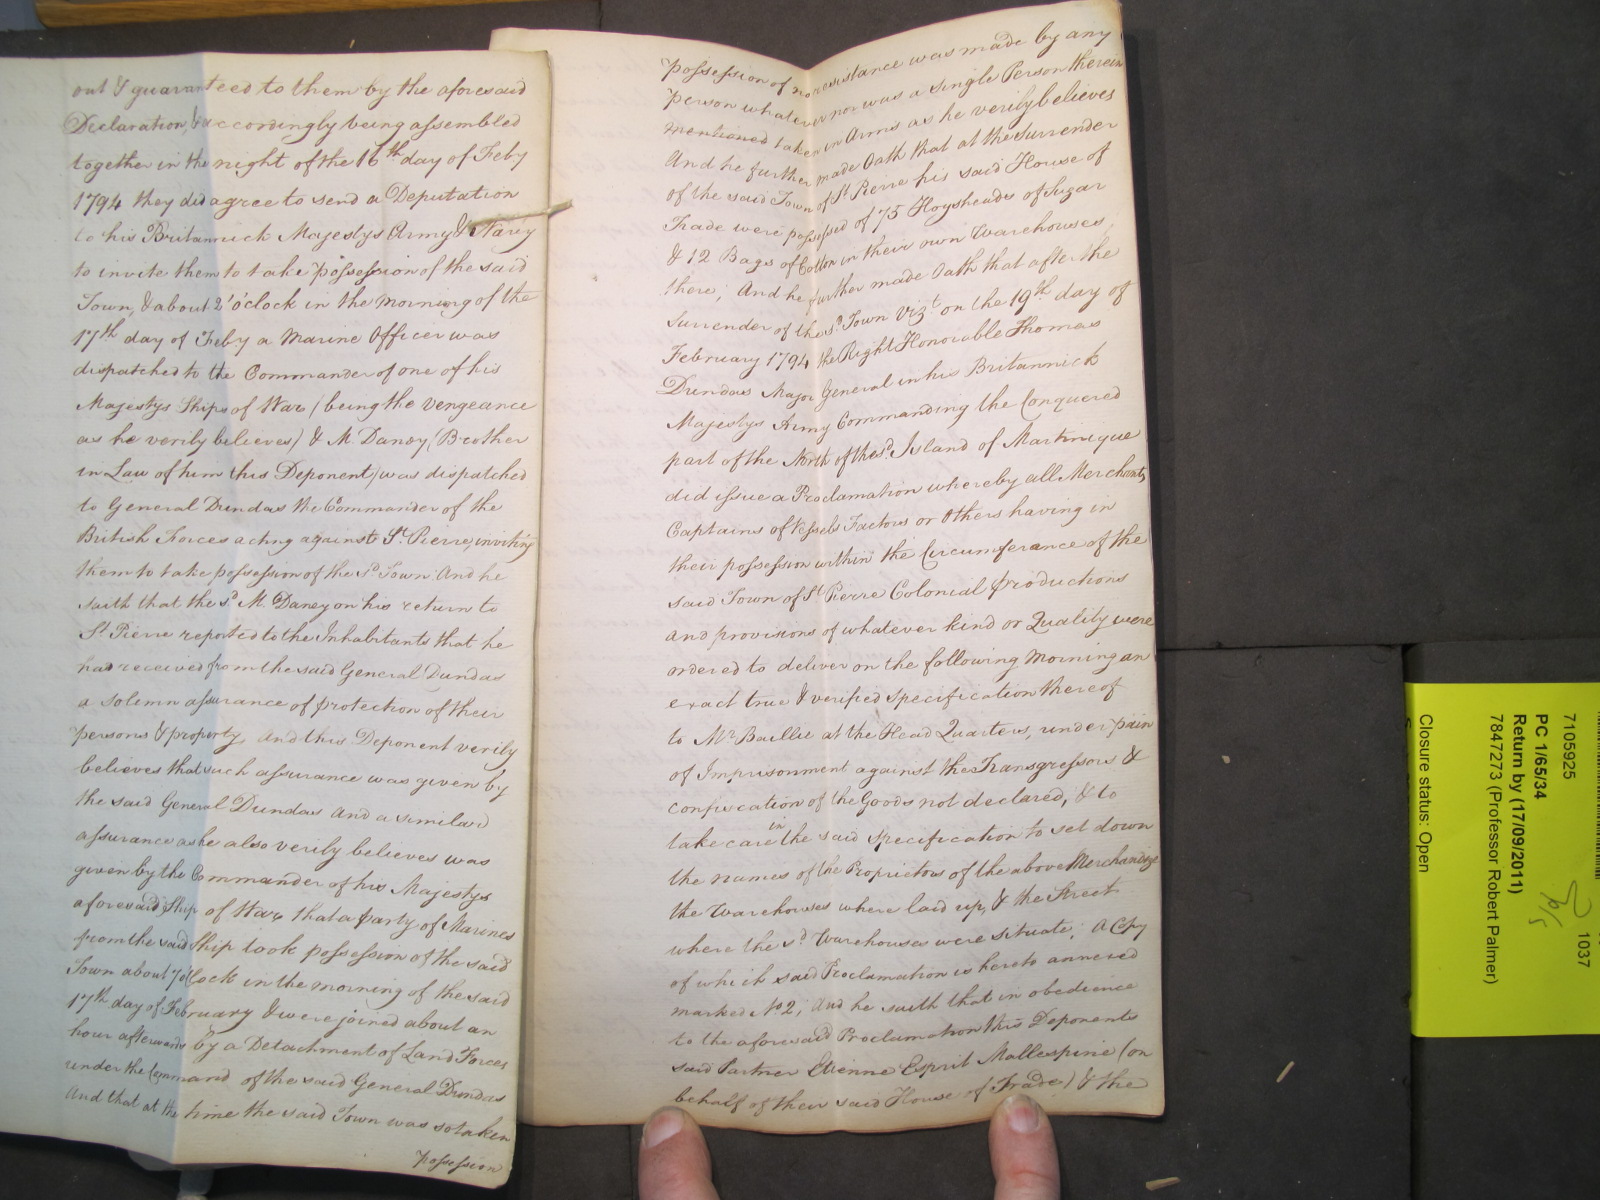 out & guaranteed to them by the aforesaid
Declaration, & accordingly being assembled
together in the night of the 16th day of Feby
1794 they did agree to send a Deputation
to his Britannick Majestys Army & Navy
to invite them to take possession of the said
Town, & about 2 o'clock in the morning of the
17th day of Feby a Marine Officer was
dispatched to the Commander of one of his
Majestys Ships of War (being the Vengeance
as he verily believes) & M. Daney (Brother
in Law of him this Deponent) was dispatched
to General Dundas the Commander of the
British Forces acting against St. Pierre, inviting
them to take possession of the sd. Town And he
saith that the sd. M. Daney on his return to
St. Pierre reported to the Inhabitants that he
had received from the said General Dundas
a solemn assurance of protection of their
persons & property, And this Deponent verily
believes that such assurance was given by
the said General Dundas And a similar
assurance as he also verily believes was
given by the Commander of his Majestys
aforesaid Ship of War that a Party of Marines
from the said Ship took possession of the said
Town about 7 o'Clock in the morning of the said
17th day of February & were joined about an
hour afterwards by a Detachment of Land Forces
under the Command of the said General Dundas
And that at the time the said Town was so taken
possession
possession of no resistance was made by any
person whatever nor was a single Person therein
mentioned taken in Arms as he verily believes
And he further made Oath that at the surrender
of the said Town of St. Pierre his said House of
Trade were possessed of 75 Hogsheads of Sugar
& 12 Bags of Cotton in their own Warehouses
there; And he further made Oath that after the
surrender of the sd. Town Vizt. on the 19th day of
February 1794 the Right Honorable Thomas
Dundas Major General in his Britannick
Majestys Army Commanding the Conquered
part of the North of the sd. Island of Martinique
did issue a Proclamation whereby all Merchants
Captains of Vessels Factors or Others having in
their possession within the Circumference of the
said Town of St. Pierre Colonial productions
and provisions of whatever kind or Quality were
ordered to deliver on the following Morning an
exact true & verified specification thereof
to Mr. Baillie at the Head Quarters, under pain
of Imprisonment against the Transgressors &
confiscation of the Goods not declared, & to
take care in the said specification to set down
the names of the Proprietors of the above Merchandize
the Warehouses where laid up, & the Street
where the sd. Warehouses were situate; A Copy
of which said Proclamation is hereto annexed
marked No. 2; And he saith that in obedience
to the aforesaid Proclamation this Deponents
said Partner Etienne Esprit Mallespine (on
behalf of their said House of Trade) & the
7105925
1037
PC 1/65/34
Return by (17/09/2011)
7847273 (Professor Robert Palmer)
Closure status: Open